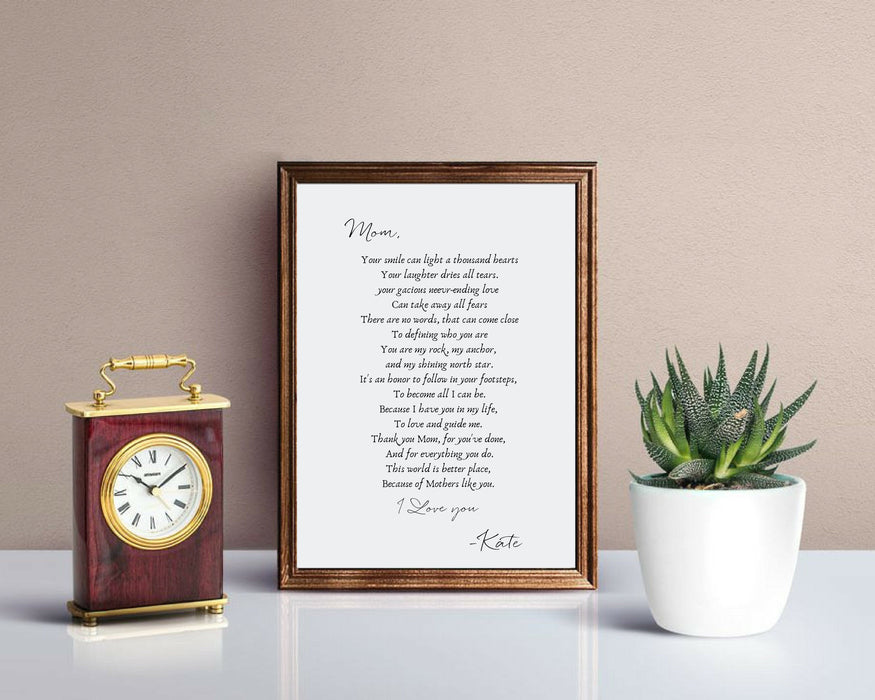 Mom,
Your smile can light a thousand hearts
Your laughter dries all tears.
your gacious neevr-ending love
Can take away all fears
There are no words, that can come close
To defining who you are
You are my rock, my anchor,
and my shining north star.
It's an honor to follow in your footsteps,
To become all I can be.
Because I have you in my life,
To love and guide me.
Thank you Mom, for you've done,
And for everything you do.
This world is better place,
Because of Mothers like you.
I Love you
-Kate